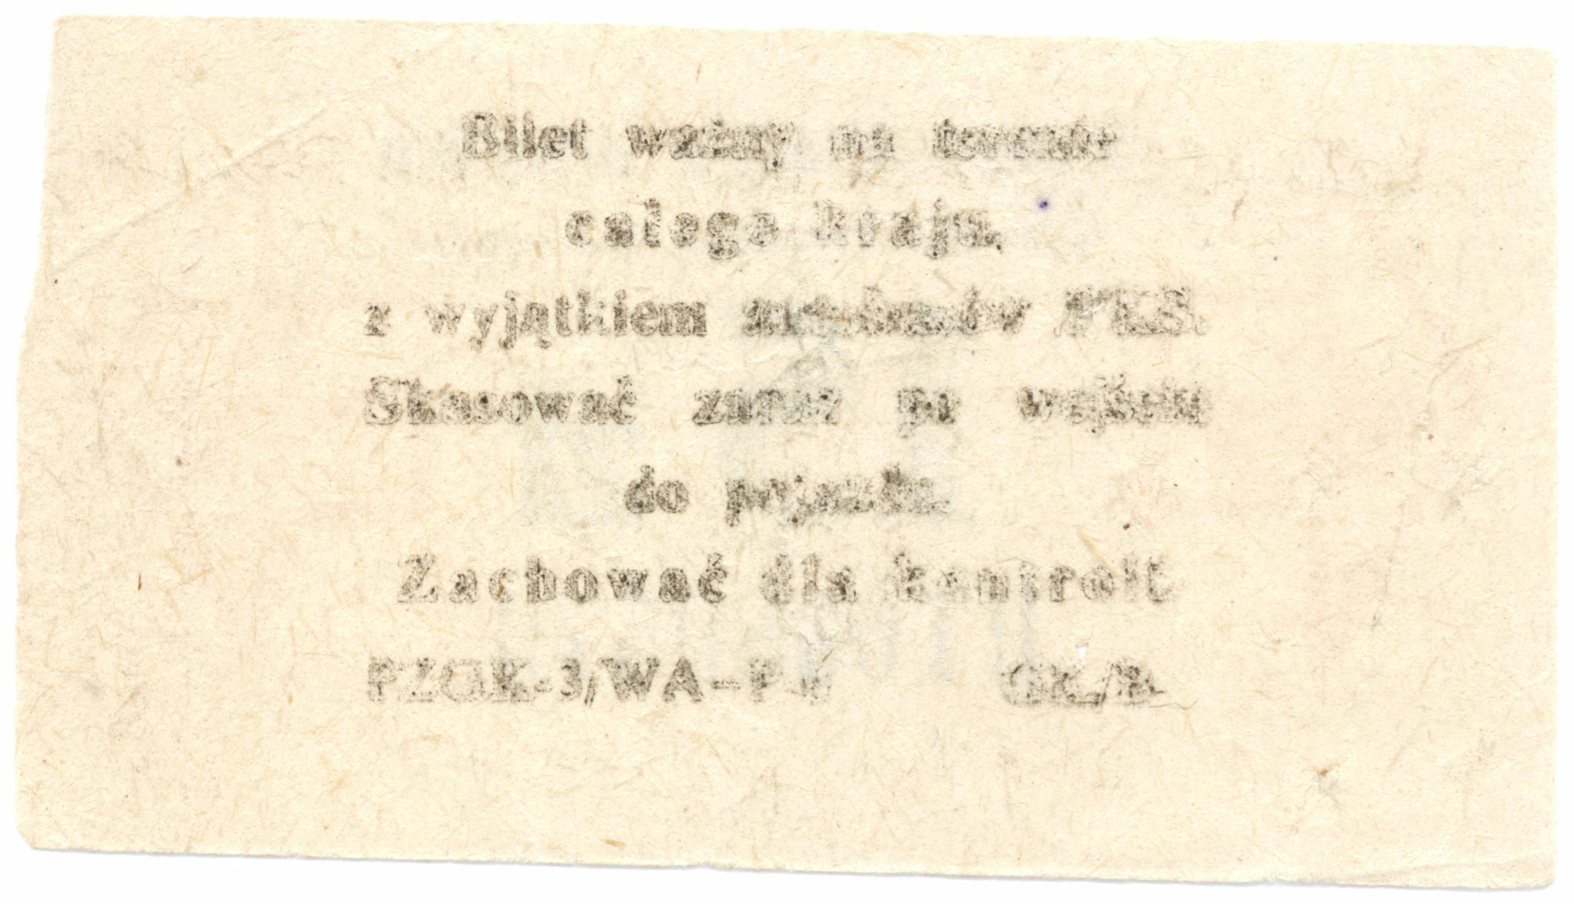 Bilet ważny na terenie
całego kraju,
z wyjątkiem autobusów PKS.
Skasować zaraz po wejściu
do pojazdu.
Zachować dla kontroli.
PZGK-3/WA-P.